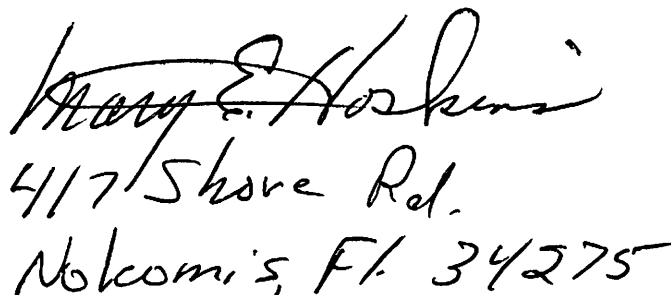 Mary E. Hoskins
417 Shore Rd.
Nokomis, Fl. 34275